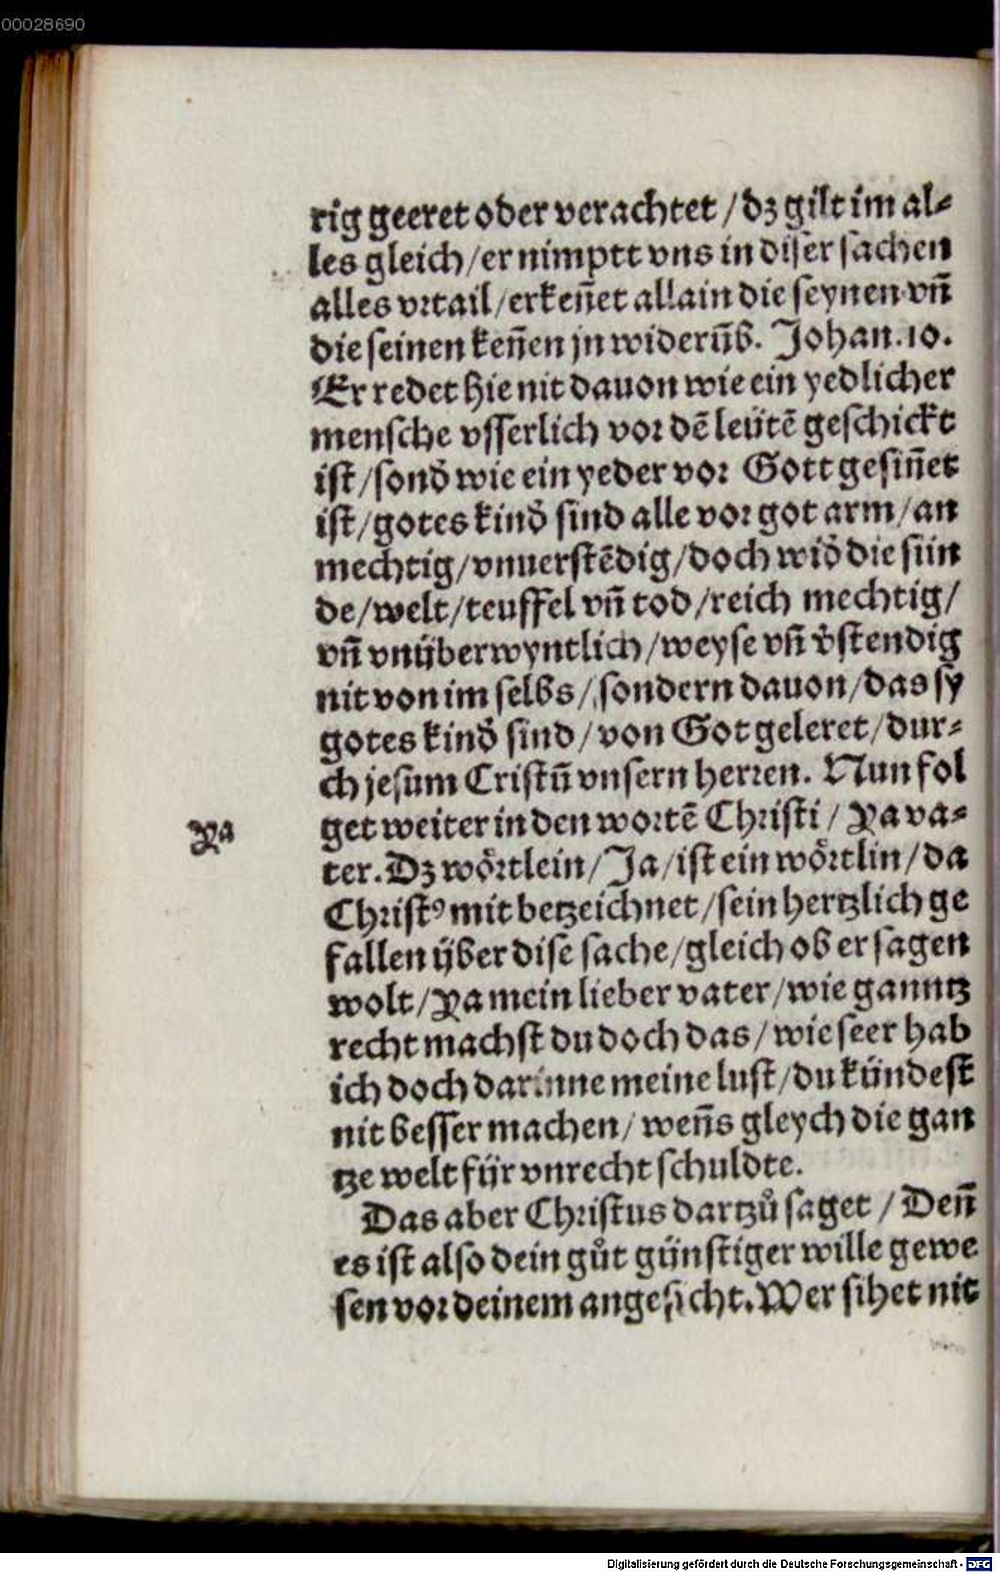 00028690
rig geeret oder verachtet / dz gilt im al⸗
les gleich / er nimptt vns in diser sachen
alles vrtail / erkeñet allain die seynen vñ
die seinen keñen jn widerũb. Johan. 10.
Er redet hie nit dauon wie ein yedlicher
mensche vsserlich vor dẽ leütẽ geschickt
ist / sonđ wie ein yeder vor Gott gesiñet
ist / gotes kinđ sind alle vor got arm / an
mechtig / vnuerstẽdig / doch wiđ die sün
de / welt / teuffel vñ tod / reich mechtig /
vñ vnüberwyntlich / weyse vñ v̉stendig
nit von im selbs / sondern dauon / das sy
gotes kinđ sind / von Got geleret / dur⸗
ch jesum Cristũ vnsern herren. Nun fol
get weiter in den wortẽ Christi / Ya va⸗
Ya
ter. Dz wörtlein / Ja / ist ein wörtlin / da
Christꝰ mit betzeichnet / sein hertzlich ge
fallen über dise sache / gleich ob er sagen
wolt / Ya mein lieber vater / wie ganntz
recht machst du doch das / wie seer hab
ich doch darinne meine lust / du kündest
nit besser machen / weñs gleych die gan
tze welt für vnrecht schuldte.
Das aber Christus dartzů saget / Deñ
es ist also dein gůt günstiger wille gewe
sen vor deinem angesicht. Wer sihet nit
Digitalisierung gefördert durch die Deutsche Forschungsgemeinschaft - DFG